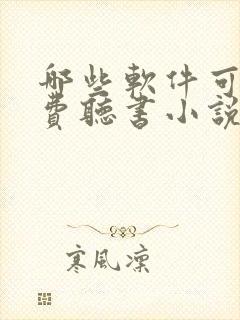 哪些軟件可
費聽書小說
寒風凜